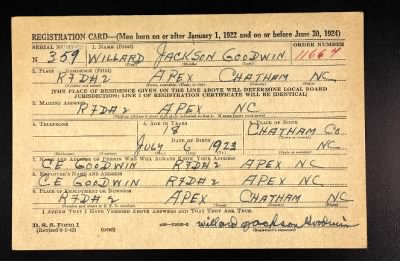 REGISTRATION CARD—(Men born on or after January 1, 1922 and on or before June 30, 1924)
SERIAL NUMBER 1. NAME (Print) ORDER NUMBER
N 359 WILLARD JACKSON GOODWIN 11667
2. PLACE OF RESIDENCE (Print)
R7D#2 APEX CHATHAM NC.
[THE PLACE OF RESIDENCE GIVEN ON THE LINE ABOVE WILL DETERMINE LOCAL BOARD
JURISDICTION; LINE 2 OF REGISTRATION CERTIFICATE WILL BE IDENTICAL]
3. MAILING ADDRESS
R7D#2 APEX NC
4. TELEPHONE 5. AGE IN YEARS 6. PLACE OF BIRTH
18 CHATHAM CO.
DATE OF BIRTH
JULY 6 1923 NC.
7. NAME AND ADDRESS OF PERSON WHO WILL ALWAYS KNOW YOUR ADDRESS
C.E GOODWIN R7D#2 APEX NC
8. EMPLOYER'S NAME AND ADDRESS
C.E GOODWIN R7D#2 APEX NC
9. PLACE OF EMPLOYMENT OR BUSINESS
R7D#2 APEX CHATHAM NC
I AFFIRM THAT I HAVE VERIFIED ABOVE ANSWERS AND THAT THEY ARE TRUE.
D. S. S. Form 1 (over) Willard Jackson Goodwin